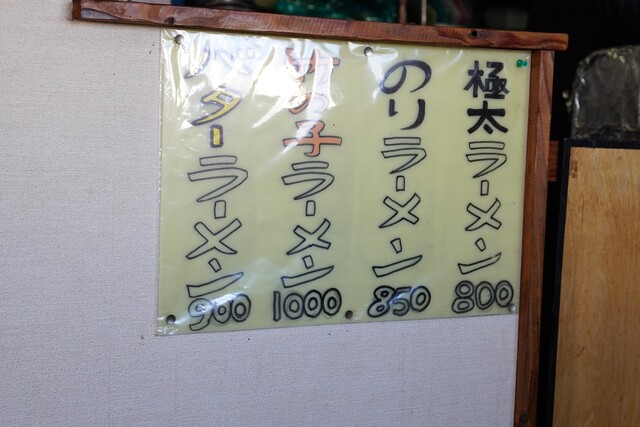 極太ラーメン 800
のりラーメン 850
竹の子ラーメン 1000
バターラーメン 900